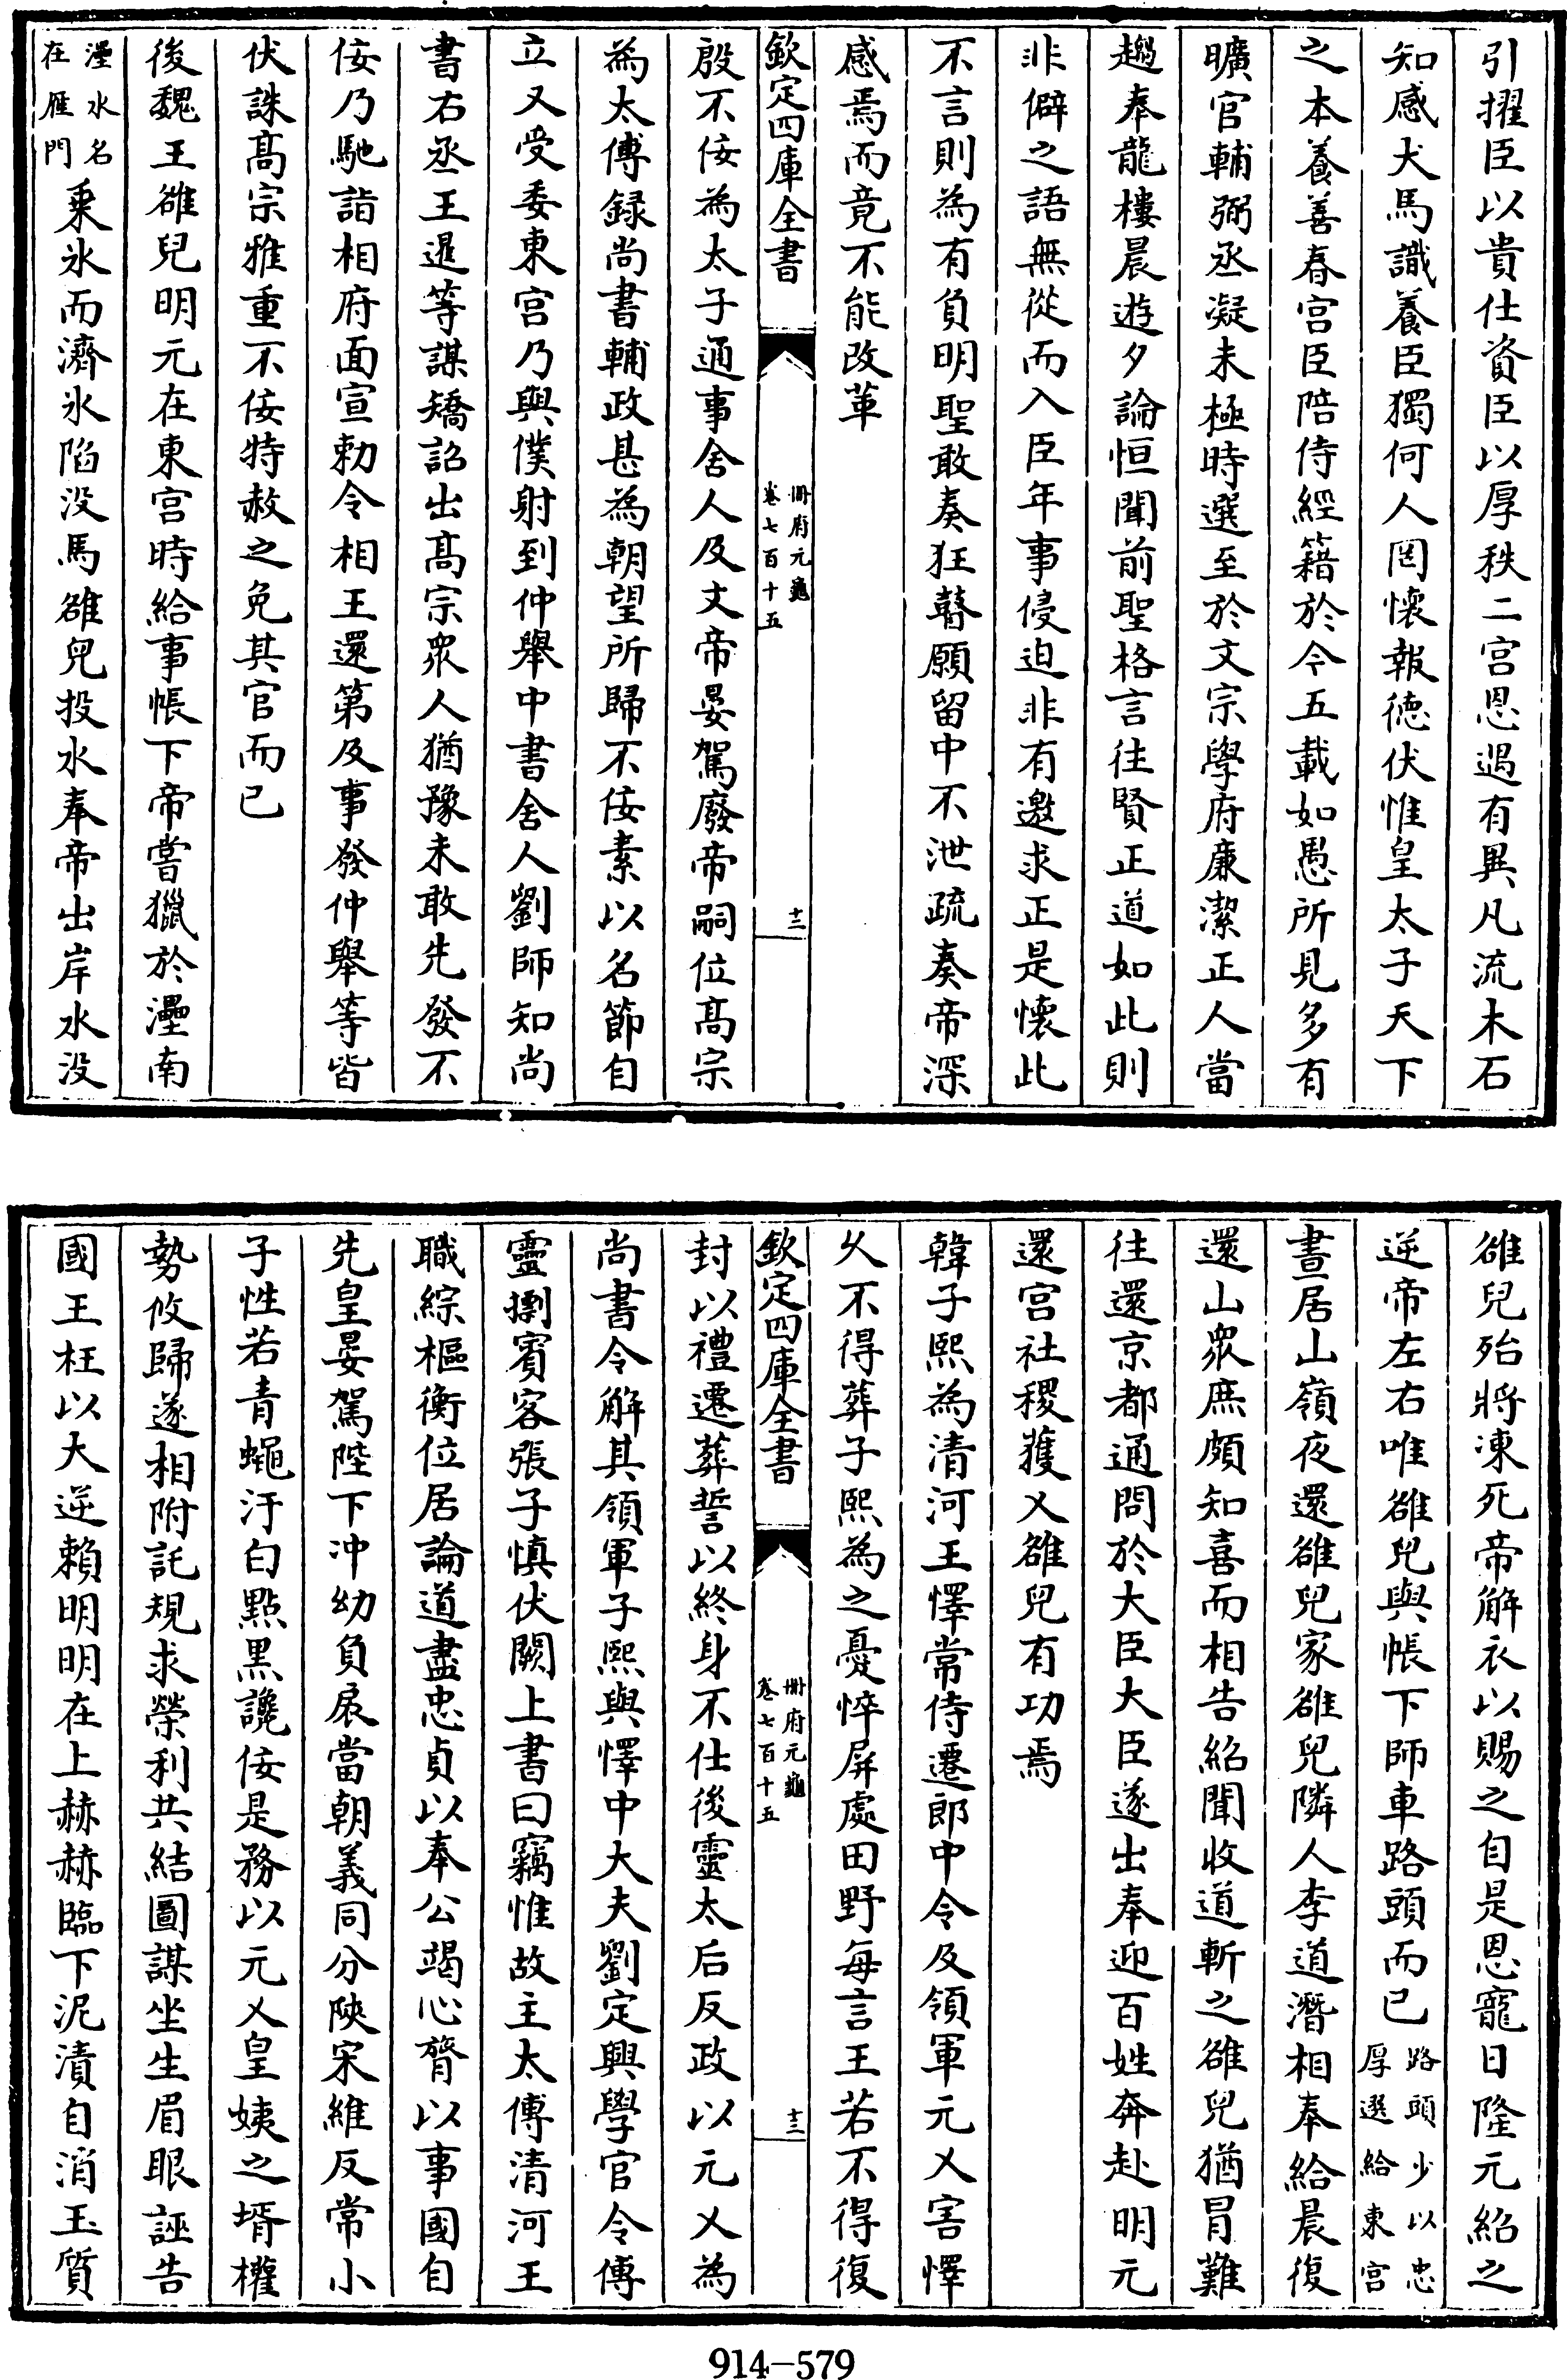 引擢臣以貴仕資臣以厚秩二宫恩遇有異凡流木石
知感犬馬識養臣獨何人罔懷報徳伏惟皇太子天下
之本養善春宫臣陪侍經籍於今五載如愚所見多有
曠官輔弼丞凝未極時選至於文宗學府廉潔正人當
趨奉龍樓晨遊夕論恒聞前聖格言往賢正道如此則
非僻之語無從而入臣年事侵迫非有邀求正是懷此
不言則為有負明聖敢奏狂瞽願留中不泄疏奏帝深
感焉而竟不能改革
欽定四庫全書
冊府元龜
卷七百十五
十二
殷不佞為太子通事舍人及文帝晏駕廢帝嗣位髙宗
為太傅録尚書輔政甚為朝望所歸不佞素以名節自
立又受委東宫乃與僕射到仲舉中書舍人劉師知尚
書右丞王暹等謀矯詔出髙宗衆人猶豫未敢先發不
佞乃馳詣相府面宣勅令相王還第及事發仲舉等皆
伏誅髙宗雅重不佞特赦之免其官而已
後魏王雒兒明元在東宫時給事帳下帝嘗獵於㶟南
㶟水名
在雁門
乗氷而濟氷陷没馬雒兒投水奉帝出岸水没
雒兒殆將凍死帝解衣以賜之自是恩寵日隆元紹之
逆帝左右唯雒兒與帳下師車路頭而已
路頭少以忠
厚選給東宫
晝居山嶺夜還雒兒家雒兒隣人李道潛相奉給晨復
還山衆庶頗知喜而相告紹聞收道斬之雒兒猶冒難
往還京都通問於大臣大臣遂出奉迎百姓奔赴明元
還宫社稷獲乂雒兒有功焉
韓子熙為清河王懌常侍遷郎中令及領軍元乂害懌
乆不得葬子熙為之憂悴屏處田野每言王若不得復
欽定四庫全書
冊府元龜
卷七百十五
十三
封以禮遷葬誓以終身不仕後靈太后反政以元乂為
尚書令解其領軍子熙與懌中大夫劉定興學官令傅
靈㩴賓客張子慎伏闕上書曰竊惟故主太傅清河王
職綜樞衡位居論道盡忠貞以奉公竭心膂以事國自
先皇晏駕陛下冲幼負扆當朝義同分陜宋維反常小
子性若青蠅汙白㸃黒讒佞是務以元乂皇姨之壻權
勢攸歸遂相附託規求榮利共結圖謀坐生眉眼誣告
國王枉以大逆賴明明在上赫赫臨下泥漬自消玉質
914-579